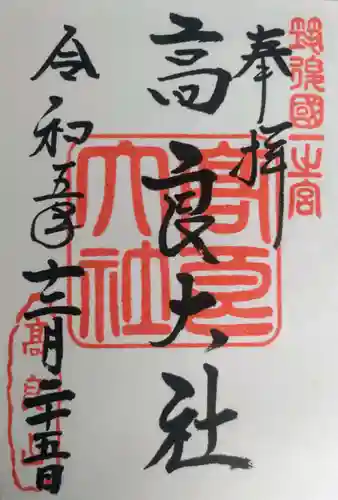 筑後國一之宮
奉拝
高良大社
高良大社
令和五年十二月二十五日